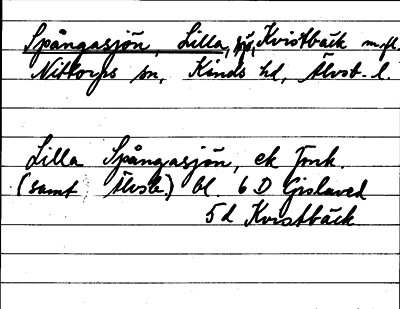 Spångasjön, Lilla, sjö, Kvistbäck m.fl.
Nittorps sn, Kinds hd, Älvsb. l.
Lilla Spångasjön, ek Jmk.
(samt Älvsb) bl. 6 D Gislaved
5 d Kvistbäck